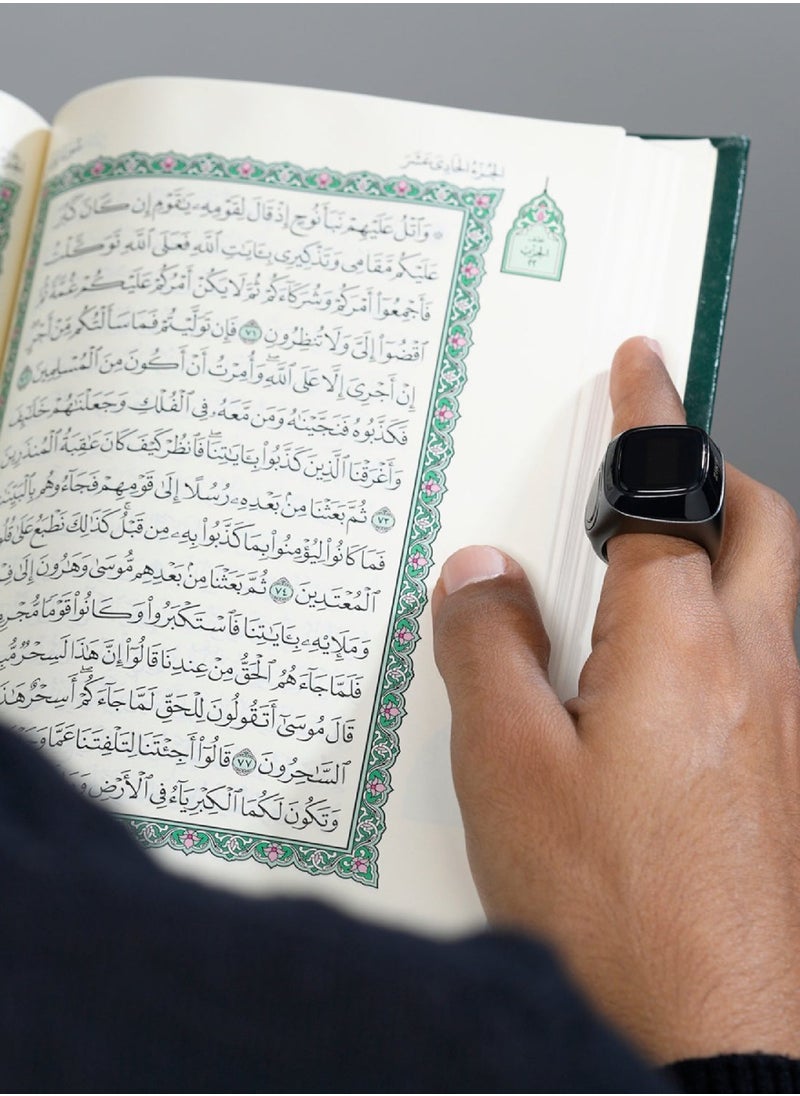 الجزء الحادي عشر
نصف
الحزب
٢٢
۞ وَٱتْلُ عَلَيْهِمْ نَبَأَ نُوحٍ إِذْ قَالَ لِقَوْمِهِۦ يَٰقَوْمِ إِن كَانَ كَبُرَ
عَلَيْكُم مَّقَامِى وَتَذْكِيرِى بِـَٔايَٰتِ ٱللَّهِ فَعَلَى ٱللَّهِ تَوَكَّلْتُ
فَأَجْمِعُوٓا۟ أَمْرَكُمْ وَشُرَكَآءَكُمْ ثُمَّ لَا يَكُنْ أَمْرُكُمْ عَلَيْكُمْ غُمَّةً ثُمَّ
ٱقْضُوٓا۟ إِلَىَّ وَلَا تُنظِرُونِ ٧١ فَإِن تَوَلَّيْتُمْ فَمَا سَأَلْتُكُم مِّنْ أَجْرٍ
إِنْ أَجْرِىَ إِلَّا عَلَى ٱللَّهِ وَأُمِرْتُ أَنْ أَكُونَ مِنَ ٱلْمُسْلِمِينَ
فَكَذَّبُوهُ فَنَجَّيْنَٰهُ وَمَن مَّعَهُۥ فِى ٱلْفُلْكِ وَجَعَلْنَٰهُمْ خَلَٰٓئِفَ
وَأَغْرَقْنَا ٱلَّذِينَ كَذَّبُوا۟ بِـَٔايَٰتِنَا فَٱنظُرْ كَيْفَ كَانَ عَٰقِبَةُ ٱلْمُنذَرِينَ
٧٣ ثُمَّ بَعَثْنَا مِنۢ بَعْدِهِۦ رُسُلًا إِلَىٰ قَوْمِهِمْ فَجَآءُوهُم بِٱلْبَيِّنَٰتِ
فَمَا كَانُوا۟ لِيُؤْمِنُوا۟ بِمَا كَذَّبُوا۟ بِهِۦ مِن قَبْلُ كَذَٰلِكَ نَطْبَعُ عَلَىٰ
ٱلْمُعْتَدِينَ ٧٤ ثُمَّ بَعَثْنَا مِنۢ بَعْدِهِم مُّوسَىٰ وَهَٰرُونَ إِلَىٰ
وَمَلَإِي۟هِۦ بِـَٔايَٰتِنَا فَٱسْتَكْبَرُوا۟ وَكَانُوا۟ قَوْمًا
فَلَمَّا جَآءَهُمُ ٱلْحَقُّ مِنْ عِندِنَا قَالُوٓا۟ إِنَّ هَٰذَا لَسِحْرٌ
قَالَ مُوسَىٰٓ أَتَقُولُونَ لِلْحَقِّ لَمَّا جَآءَكُمْ أَسِحْرٌ هَٰذَا
ٱلسَّٰحِرُونَ ٧٧ قَالُوٓا۟ أَجِئْتَنَا لِتَلْفِتَنَا عَمَّا
وَتَكُونَ لَكُمَا ٱلْكِبْرِيَآءُ فِى ٱلْأَرْضِ